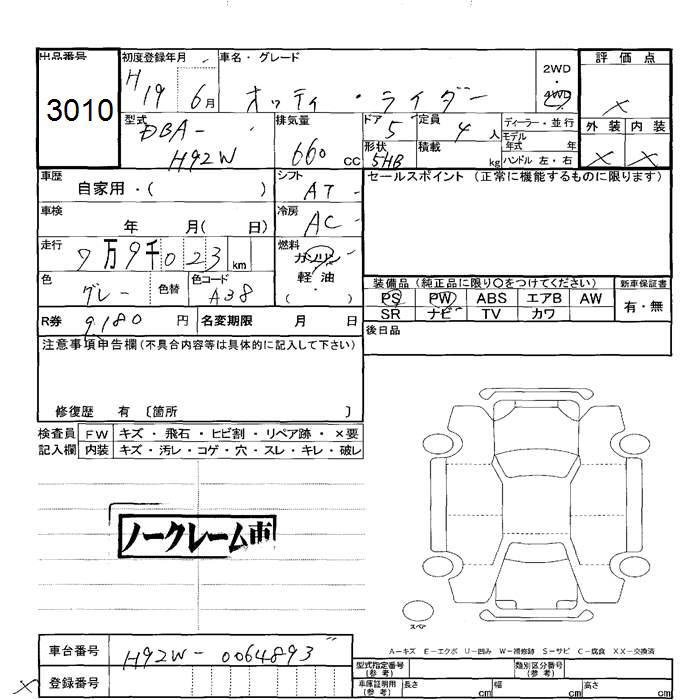 出品番号 初度登録年月 車名・グレード 2WD 評価点
3010 H19 6月 オッティ・ライダー 4WD ×
型式 排気量 ドア 定員 ディーラー・並行 外装 内装
DBA- H92W 660 cc 5 4人 モデル年式 年 × ×
形状 5HB 積載 kg ハンドル 左・右
車歴 自家用・( ) シフト AT セールスポイント (正常に機能するものに限ります)
車検 年 月( 日) 冷房 AC
走行 7万9千023 km 燃料 ガソリン
軽・油
( )
色 グレー 色替 色コード A38
装備品 (純正品に限り○をつけてください) 新車保証書
PS PW ABS エアB AW 有・無
SR ナビ TV カワ
R券 9,180 円 名変期限 月 日 後日品
注意事項申告欄(不具合内容等は具体的に記入して下さい)
修復歴 有 〔箇所 〕
検査員 FW キズ・飛石・ヒビ割・リペア跡・×要
記入欄 内装 キズ・汚レ・コゲ・穴・スレ・キレ・破レ
ノークレーム車
スペア
A－キズ E－エクボ U－凹み W－補修跡 S－サビ C－腐食 XX－交換済
車台番号 H92W-0064893 型式指定番号(参考) 類別区分番号(参考)
× 登録番号 車庫証明用(参考) 長さ cm 幅 cm 高さ cm